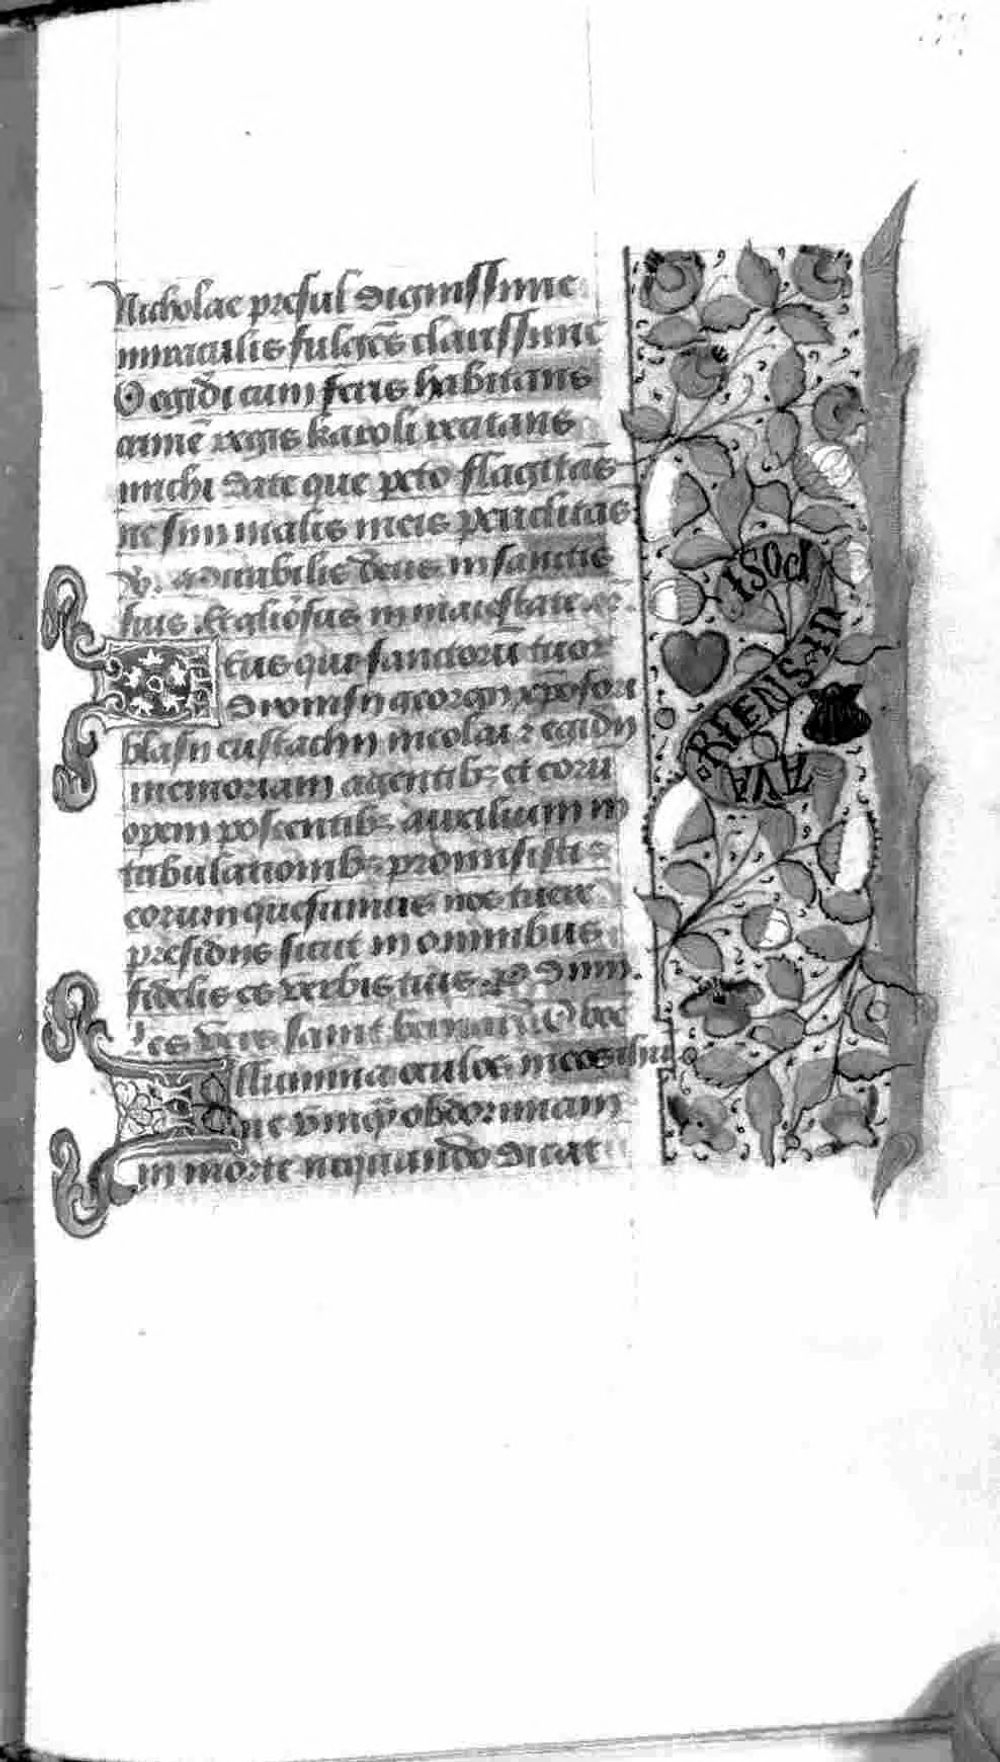 Nicholae presul dignissime
miraculis fulgēs clarissime
O egidi cum feris habitans
crimē regis karoli recitans
michi date que peto flagitās
ne sim malis meis periclitās
℣. adiurabilis deus in sanctis
suis. Et gliosus in maiestate
Eus qui sanctorū tuor
dionisii georgii xpofori
blasii eustachii nicolai ⁊ egidii
memoriam agentibȝ et eorū
opem poscentibȝ auxilium in
tribulationibȝ promisisti
eorum quesumus nos tuere
presidiis sicut in omnibus
fidelis es verbis tuis. P dnm.
Les vers saint bernard
Illumina oculos meos ihu
ne vnqȝ obdormiam
in morte nequando dicat
RHENS IN
AVA